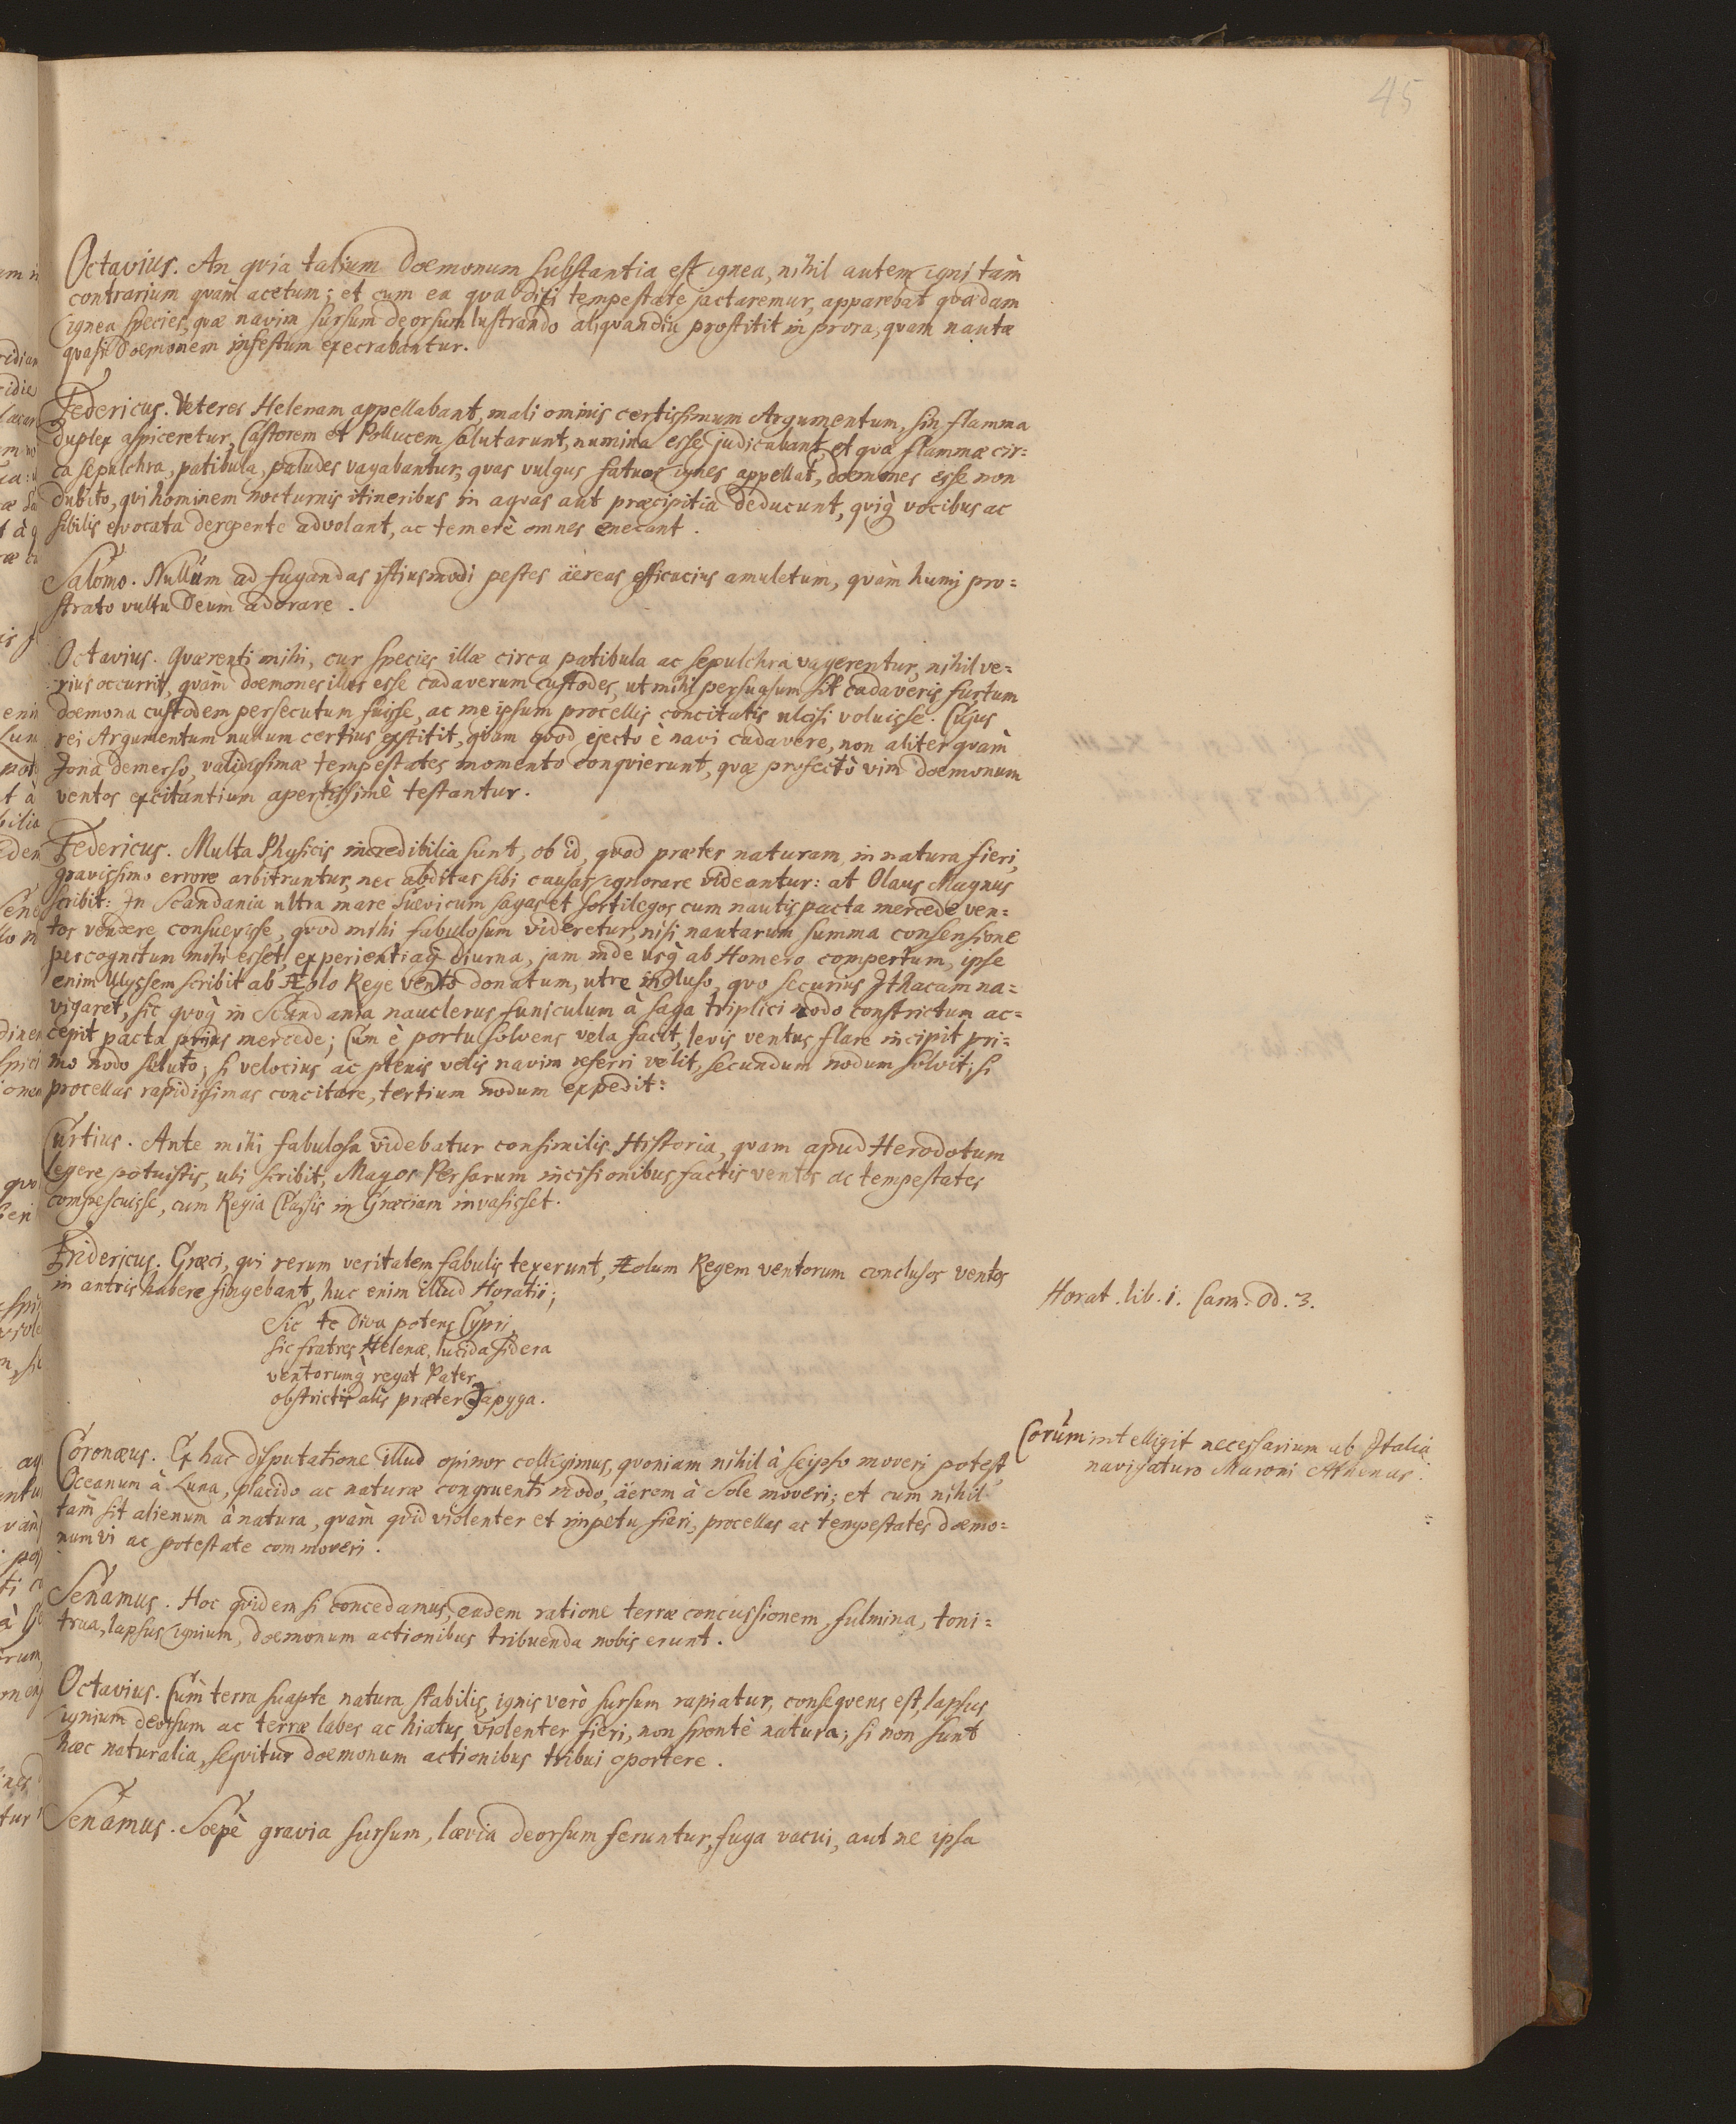 45
Octavius. An qvia talium Doemonum substantia est ignea, nihil autem igni tàm
contrarium qvàm acetum; et cum ea qva dixi tempestate jactaremur, apparebat qvædam
ignea species, qvæ navim sursum deorsum lustrando aliqvandiu prostitit in prora, qvam nautæ
qvasi Doemonem infestum execrabantur.
Federicus. Veteres Helenam appellabant, mali ominis certissimum Argumentum, sin flamma
duplex aspiceretur, Castorem et Pollucem salutarunt, numina esse judicabant, et qvæ flammæ cir=
ca sepulchra, patibula, paludes vagabantur, qvas vulgus fatuos ignes appellat, doemones esse non
dubito, qvi hominem nocturnis itineribus in aqvas aut præcipitia deducunt, qviq̀ vocibus ac
sibilis evocata derepente advolant, ac temerè omnes enecant.
Salomo. Nullum ad fugandas istiusmodi pestes äereas efficacius amuletum, qvàm humi pro=
strato vultu Deum adorare.
Octavius. Qværenti mihi, cur species illæ circa patibula ac sepulchra vagerentur, nihil ve=
rius occurrit, qvàm doemones illos esse cadaverum custodes, ut mihi persuasum sit cadaveris furtum
doemona custodem persecutum fuisse, ac me ipsum procellis concitatis ulcisi voluisse. Cujus
rei Argumentum nullum certius exstitit, qvam qvod ejecto è navi cadavere, non aliter qvàm
Jona demerso, validissimæ tempestates momento conqvierunt, qvæ profectò vim doemonum
ventos excitantium apertissimè testantur.
Federicus. Multa Physicis incredibilia sunt, ob id, qvod præter naturam in natura fieri,
gravissimo errore arbitrantur, nec abditas sibi causas ignorare videantur: at Olaus Magnus
scribit: In Scandania ultra mare Suevicum sagas et sortilegos cum nautis pacta mercede ven=
tos vendere consuevisse, qvod mihi fabulosum videretur, nisi nautarum summa consensione
percognitum mihi esset, experientiaq̀ diurna, jam inde usq̀ ab Homero compertum, ipse
enim Ulyssem scribit ab Æolo Rege vento donatum, utre incluso, qvo securius Ithacam na=
vigaret, sic qvoq̀ in Scandania nauclerus funiculum à saga triplici nodo constrictum ac=
cepit pacta prius mercede; Cum è portu solvens vela facit, levis ventus flare incipit pri=
mo nodo soluto; si velocius ac plenis velis navim referri velit, secundum nodum solvit; si
procellas rapidissimas concitare, tertium nodum expedit:
Curtius. Ante mihi fabulosa videbatur consimilis Historia, qvam apud Herodotum
legere potuistis, ubi scribit, Magos Persarum incisionibus factis ventos ac tempestates
compescuisse, cum Regia Classis in Græciam invasisset.
Fridericus. Græci, qvi rerum veritatem fabulis texerunt, Æolum Regem ventorum conclusos ventos
in antris habere fingebant, huc enim illud Horatii;
Horat. lib. 1. Carm. Od. 3.
Sic te Diva potens Cypri,
sic fratres Helenæ, lucida sidera
ventorumq̀ regat Pater
obstrictis aliis præter Japyga.
Corum intelligit necessarium ab Italia
navigaturo Maroni Athenas.
Coronæus. Ex hac disputatione illud opinor colligimus, qvoniam nihil à seipso moveri potest
Oceanum à Luna, placido ac naturæ congruenti modo, äerem à Sole moveri; et cum nihil
tam sit alienum à natura, qvàm qvid violenter et impetu fieri, procellas ac tempestates doemo=
num vi ac potestate commoveri.
Senamus. Hoc qvidem si concedamus, eadem ratione terræ concussionem, fulmina, toni=
trua, lapsus ignium, doemonum actionibus tribuenda nobis erunt.
Octavius. Cum terra suapte natura stabilis, ignis verò sursum rapiatur, conseqvens est, lapsus
ignium deorsum ac terræ labes ac hiatus violenter fieri, non spontè natura; si non sunt
hæc naturalia, seqvitur doemonum actionibus tribui oportere.
Senamus. Soepè gravia sursum, lævia deorsum feruntur, fuga vacui, aut ne ipsa